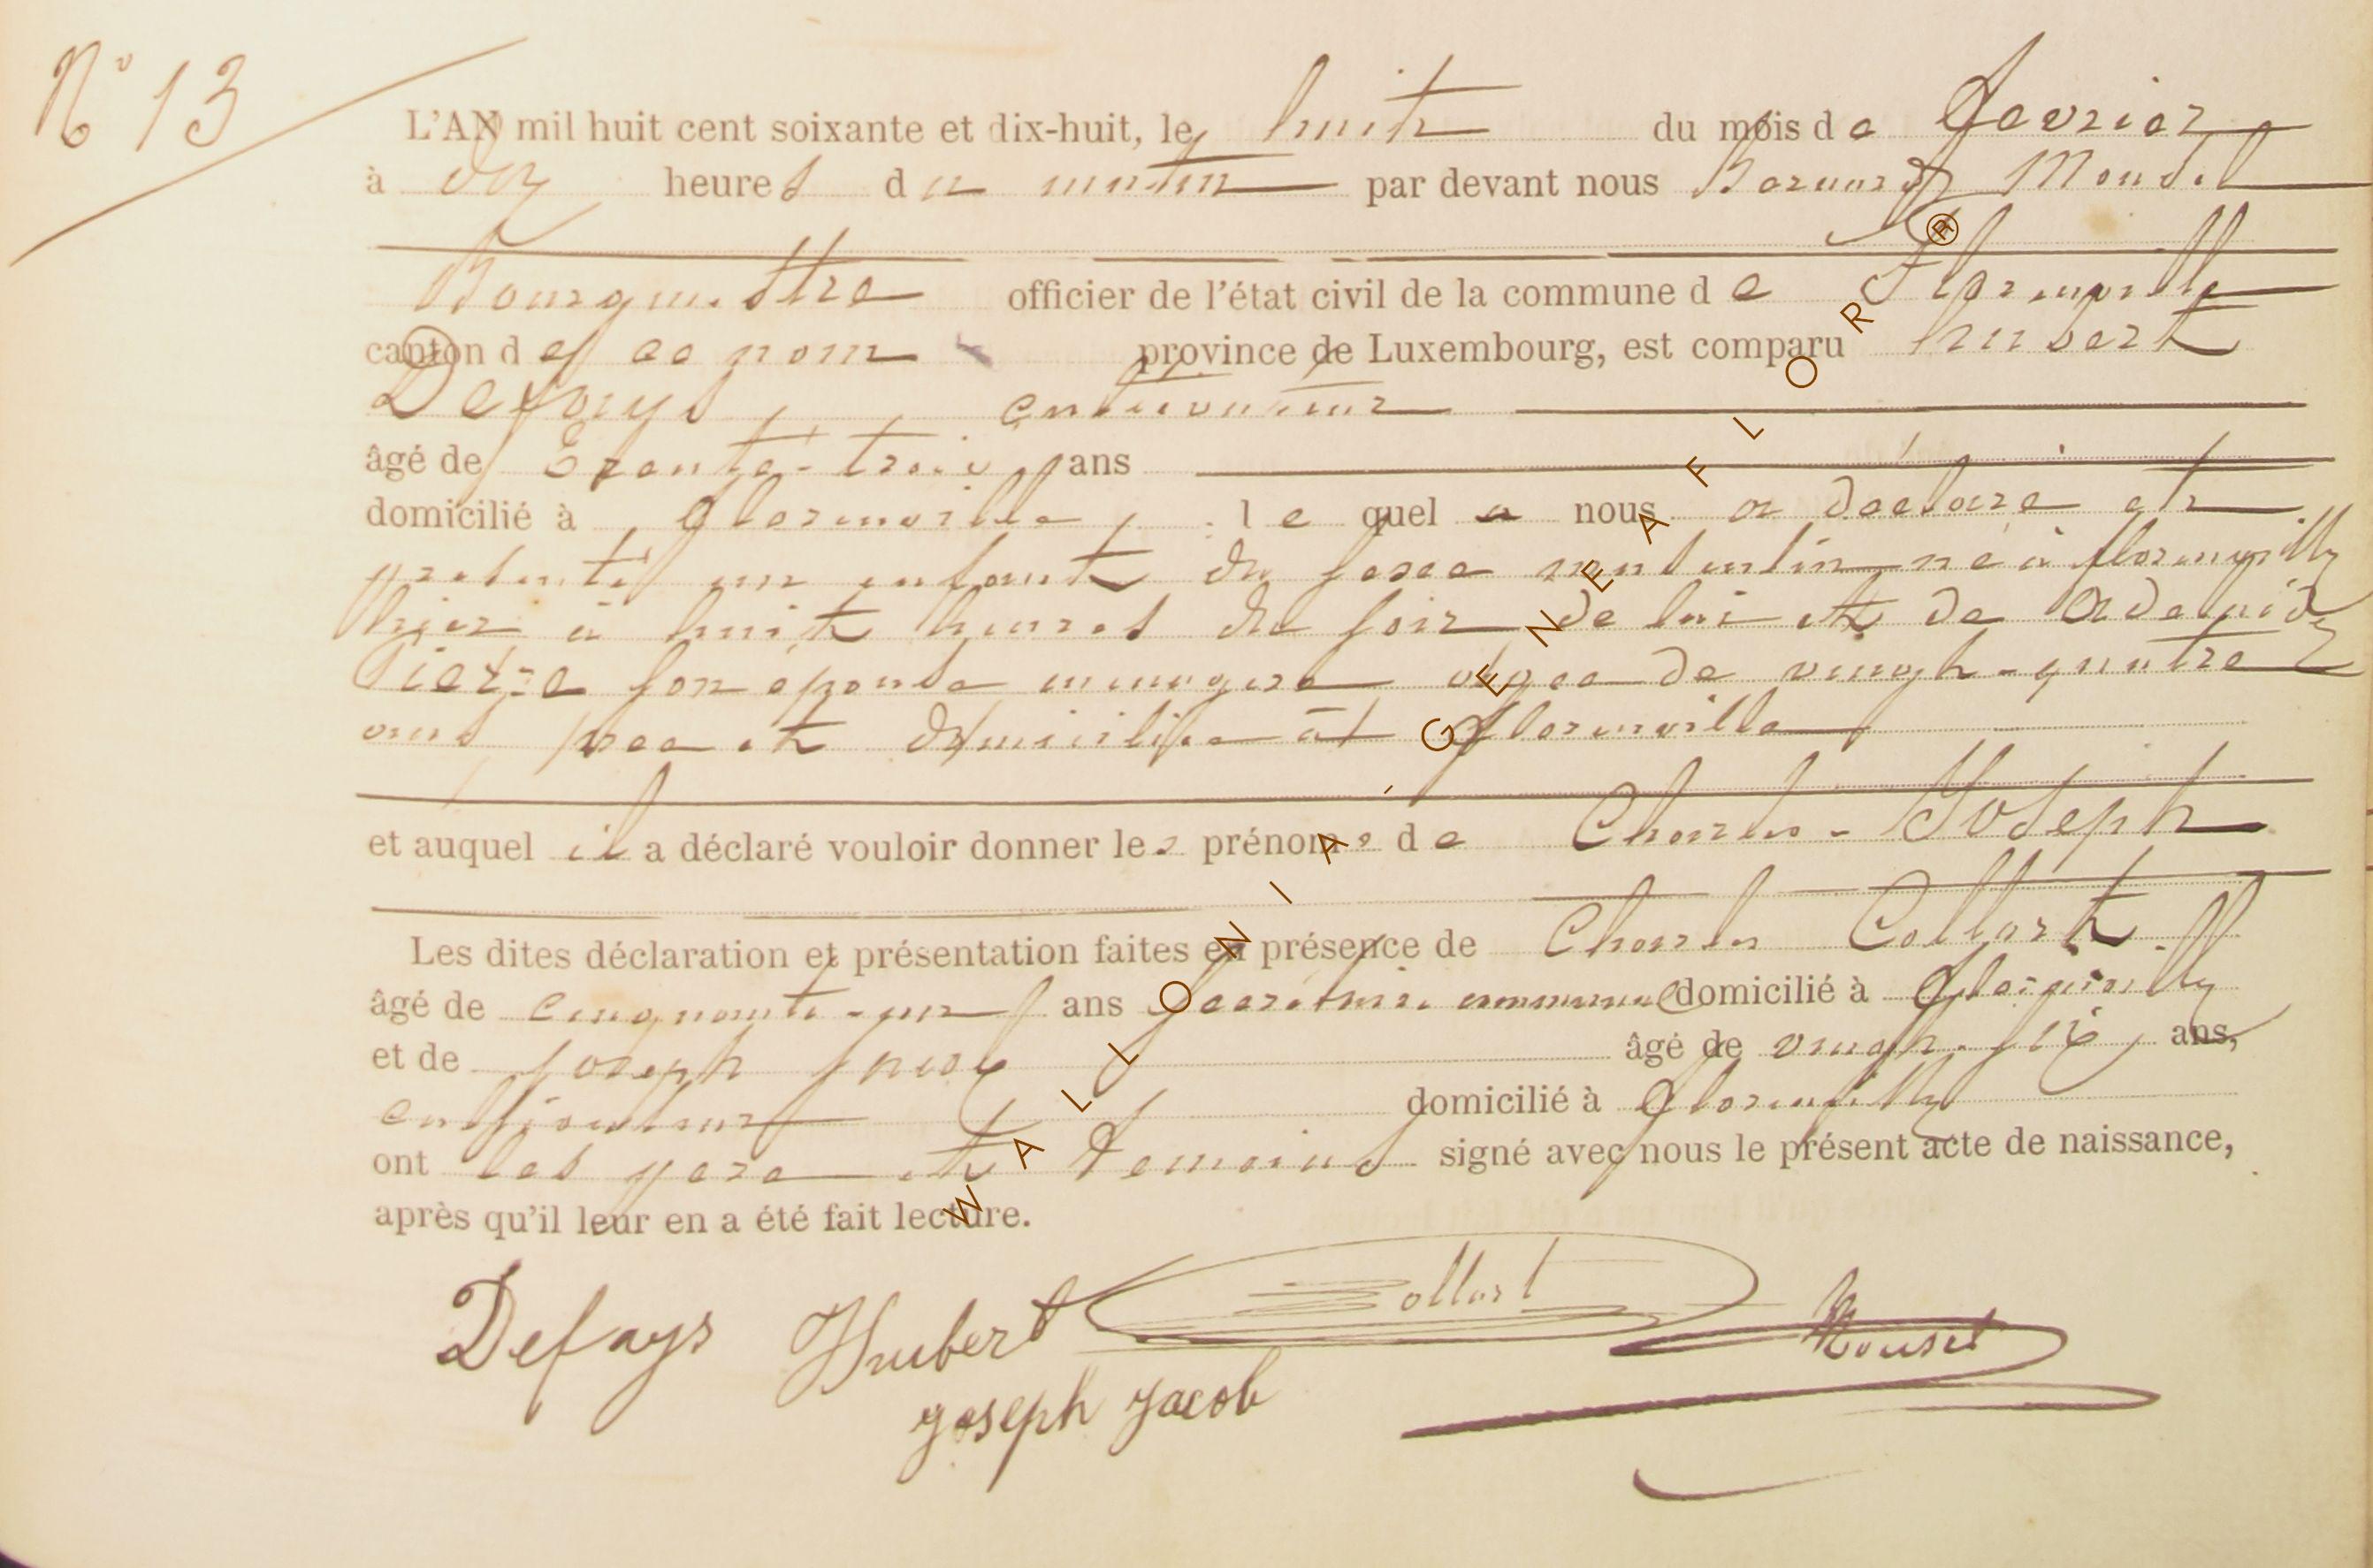 N° 13
L'AN mil huit cent soixante et dix-huit, le huit du mois de fevrier
à dix heures du matin par devant nous Bernard Mousel
Bourgmestre officier de l'état civil de la commune de Florenville
canton de ce nom province de Luxembourg, est comparu hubert
Defays,
âgé de trente-trois ans
domicilié à florenville, lequel a nous a declare et
presenté un enfant du sexe masculin né à florenville
hier à huit heures du soir de lui et de Adelaide
Pierre son épouse menagere agee de vingt-quatre
ans nee et domiciliee à florenville
et auquel il a déclaré vouloir donner les prénoms de Charles-Joseph
Les dites déclaration et présentation faites en présence de Charles Collart
âgé de cinquante-un ans secretaire communal domicilié à florenville
et de joseph jacob âgé de vingt-six, ans,
domicilié à florenville
ont les pere et temoins signé avec nous le présent acte de naissance,
après qu'il leur en a été fait lecture.
Defays Hubert Collart Mousel
joseph jacob
WALLONIA, GENEAFLOR®